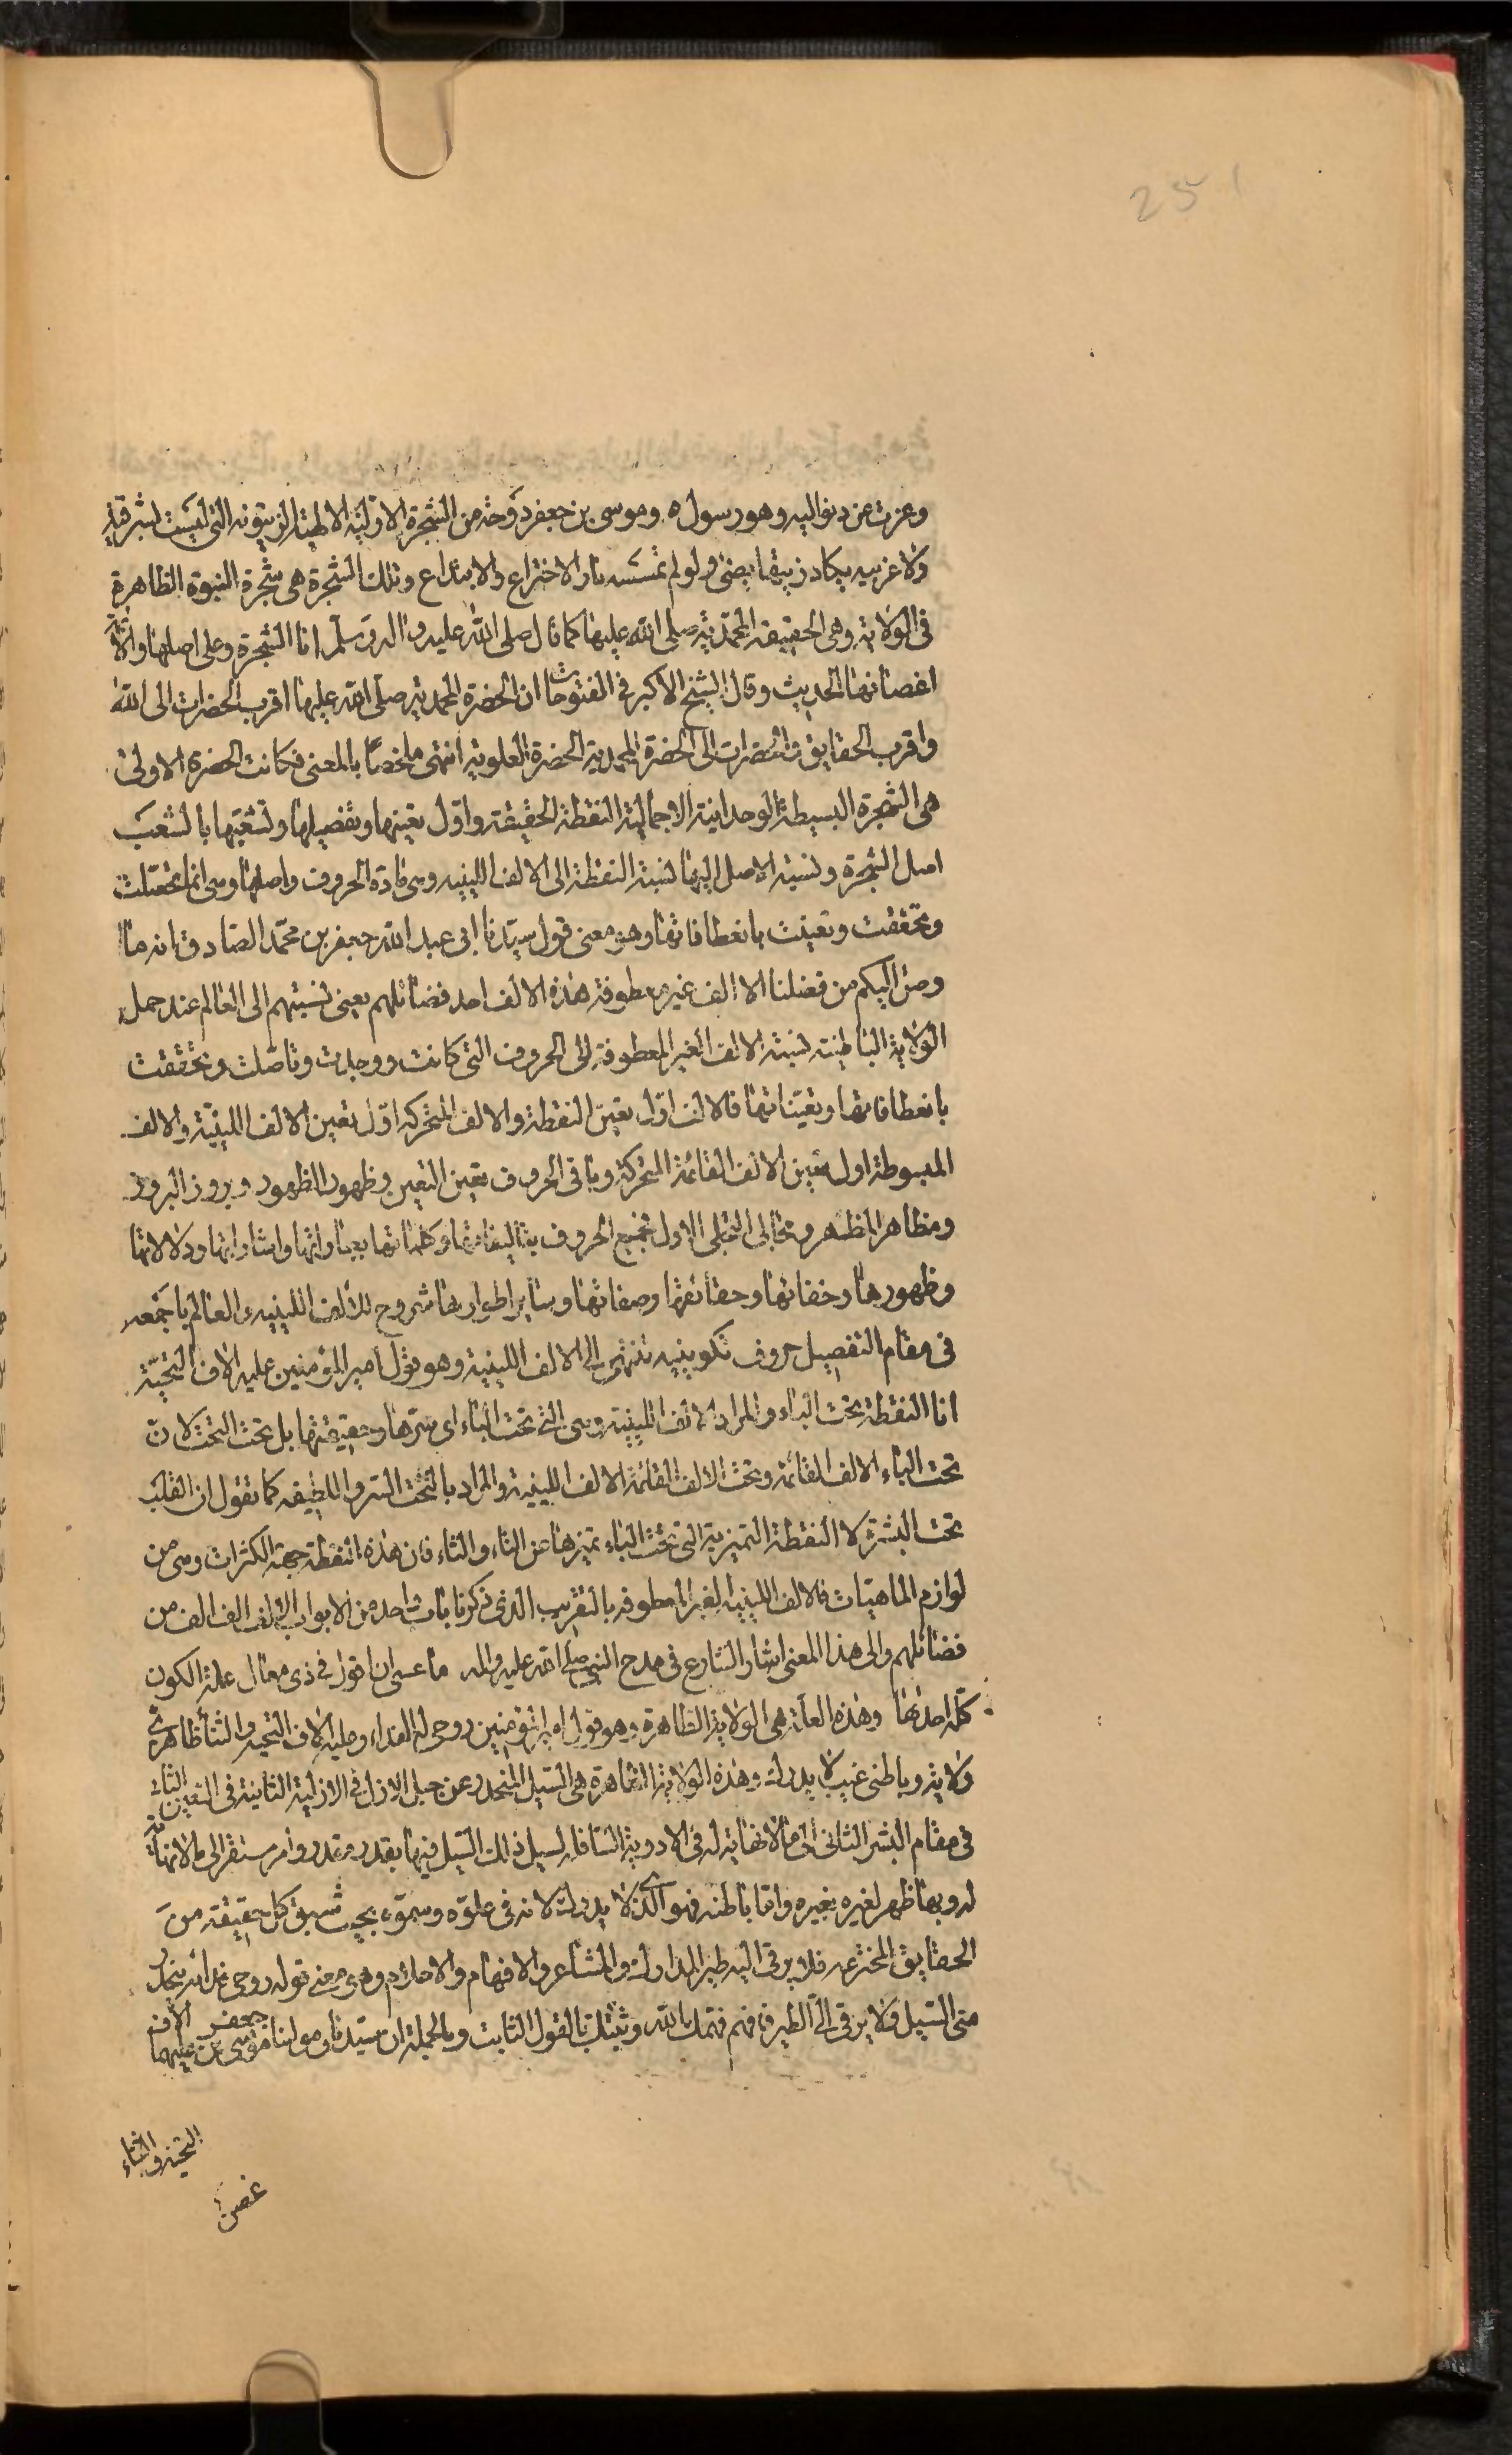 251
وعزت عن دنو اليه وهو رسوله وموسى بن جعفر دوحة من الشجرة الازلية الالهية الزيتونة التى ليست بشرقية
ولا غربيه يكاد زيتها يضئ ولو لم تمسسه نار الاختراع والابتداع وتلك الشجرة هى شجرة النبوة الظاهرة
فى الولاية وهى الحقيقة المحمدية صلى الله عليها كما قال صلى الله عليه واله وسلم انا الشجرة وعلى اصلها والائمة
اغصانها الحديث وقال الشيخ الاكبر فى الفتوحات ان الحضرة المحمدية صلى الله عليها اقرب الحضرات الى الله
واقرب الحقايق والحضرات الى الحضرة المحمدية الحضرة العلوية انتهى ملخصاً بالمعنى فكانت الحضرة الاولى
هى الشجرة البسيطة الوحدانية الاجمالية النقطة الحقيقة واول تعينها وتفصيلها وتشعبها بالشعب
اصل الشجرة ونسبة الاصل اليها نسبة النقطة الى الالف اللينيه وهى مادة الحروف واصلها وهى انما تحصلت
وتحققت وتعينت بانعطافاتها وهو معنى قول سيدنا ابى عبد الله جعفر بن محمد الصادق انه ما
وصل اليكم من فضلنا الا الف غير معطوفة هذه الالف احد فضائلهم يعنى نسبتهم الى العالم عند حمل
الولاية الباطنة نسبة الالف الغير المعطوفة الى الحروف التى كانت ووجدت وتاصلت وتحققت
بانعطافاتها وتعيناتها فالالف اول تعين النقطة والالف المتحركه اول تعين الالف اللينية والالف
المبسوطة اول تعين الالف القائمة المتحركة وباقى الحروف تعين التعين وظهور الظهور وبروز البروز
ومظاهر المظهر ومجالى التجلى الاول فجميع الحروف بتاليفاتها وكلماتها بعباراتها واشاراتها ودلالاتها
وظهورها وخفائها وحقائقها وصفاتها وساير اطوارها شروح للالف اللينيه والعالم باجمعه
فى مقام التفصيل حروف تكوينيه تنتهى الى الالف اللينية وهو قول امير المؤمنين عليه الاف التحية
انا النقطة تحت الباء والمراد الالف اللينية وهى التى تحت الباء اى سرها وحقيقتها بل تحت التحت لان
تحت الباء الالف القائمة وتحت الالف القائمة الالف اللينية والمراد بالتحت السر واللطيفه كما تقول ان القلب
تحت البشرة لا النقطة التميزية التى تحت الباء تميزها عن التاء والثاء فان هذه النقطة جهة الكثرات وهى من
لوازم الماهيات فالالف اللينية الغير المعطوفه بالتقريب الذى ذكرنا باب واحد من الابواب الالف الف من
فضائلهم والى هذا المعنى اشار الشارع فى مدح النبى صلى الله عليه واله ما عسى ان اقول فى ذى معال علة الكون
كله احدها وهذه العلة هى الولاية الظاهرة وهو قول امير المؤمنين روحى له الفداء وعليه الاف التحيه والثنا ظاهرى
ولاية وباطنى غيب لا يدرك وهذه الولاية الظاهرة هى السيل المنحدر عن جبل الازل فى الازلية الثانية فى التعين الثانى
فى مقام البشر الثانى الى ما لا نهاية له فى الاودية السافله لسيل ذلك السيل فيها بقدر مقدر وامر مستقر الى ما لا نهاية
له وبها ظهر لغيره بغيره واما باطنه فهو الذى لا يدرك لانه فى علوه وسموه بحيث سبق كل حقيقة من
الحقايق المخترعه فلا يرقى اليه طير المدارك والمشاعر والافهام والاحلام وهى معنى قوله روحى فداه ينحدر
عنى السيل ولا يرقى الىّ الطير فافهم فهمك الله وثبتك بالقول الثابت وبالجملة ان سيدنا ومولينا موسى بن جعفر عليهما الاف
التحية والثناء
غصن